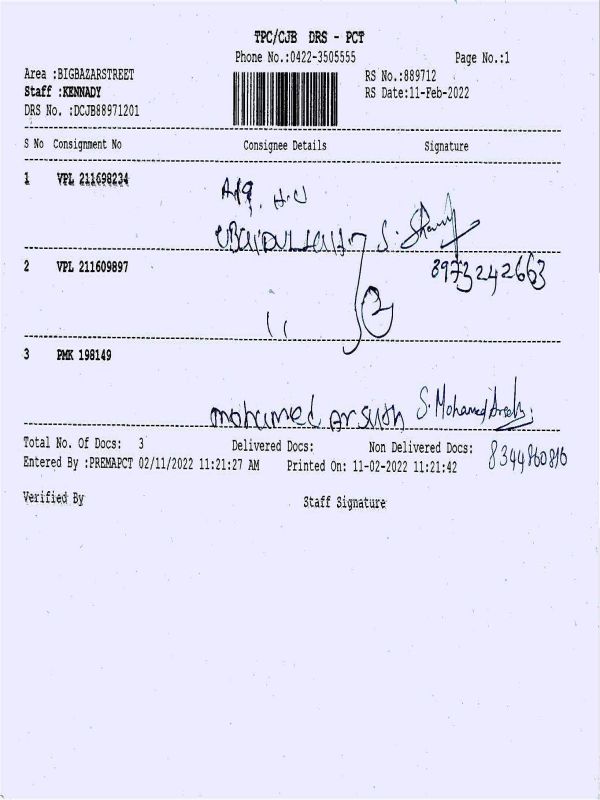 TPC/CJB DRS - PCT
Phone No.:0422-3505555 Page No.:1
Area :BIGBAZARSTREET RS No.:889712
Staff :KENNADY RS Date:11-Feb-2022
DRS No. :DCJB88971201
S No Consignment No Consignee Details Signature
1 VPL 211698234
S.
2 VPL 211609897 8973242663
11 2
3 PMK 198149
mohamed Arsath S. Mohamed
Total No. Of Docs: 3 Delivered Docs: Non Delivered Docs:
8344860816
Entered By :PREMAPCT 02/11/2022 11:21:27 AM Printed On: 11-02-2022 11:21:42
Verified By Staff Signature